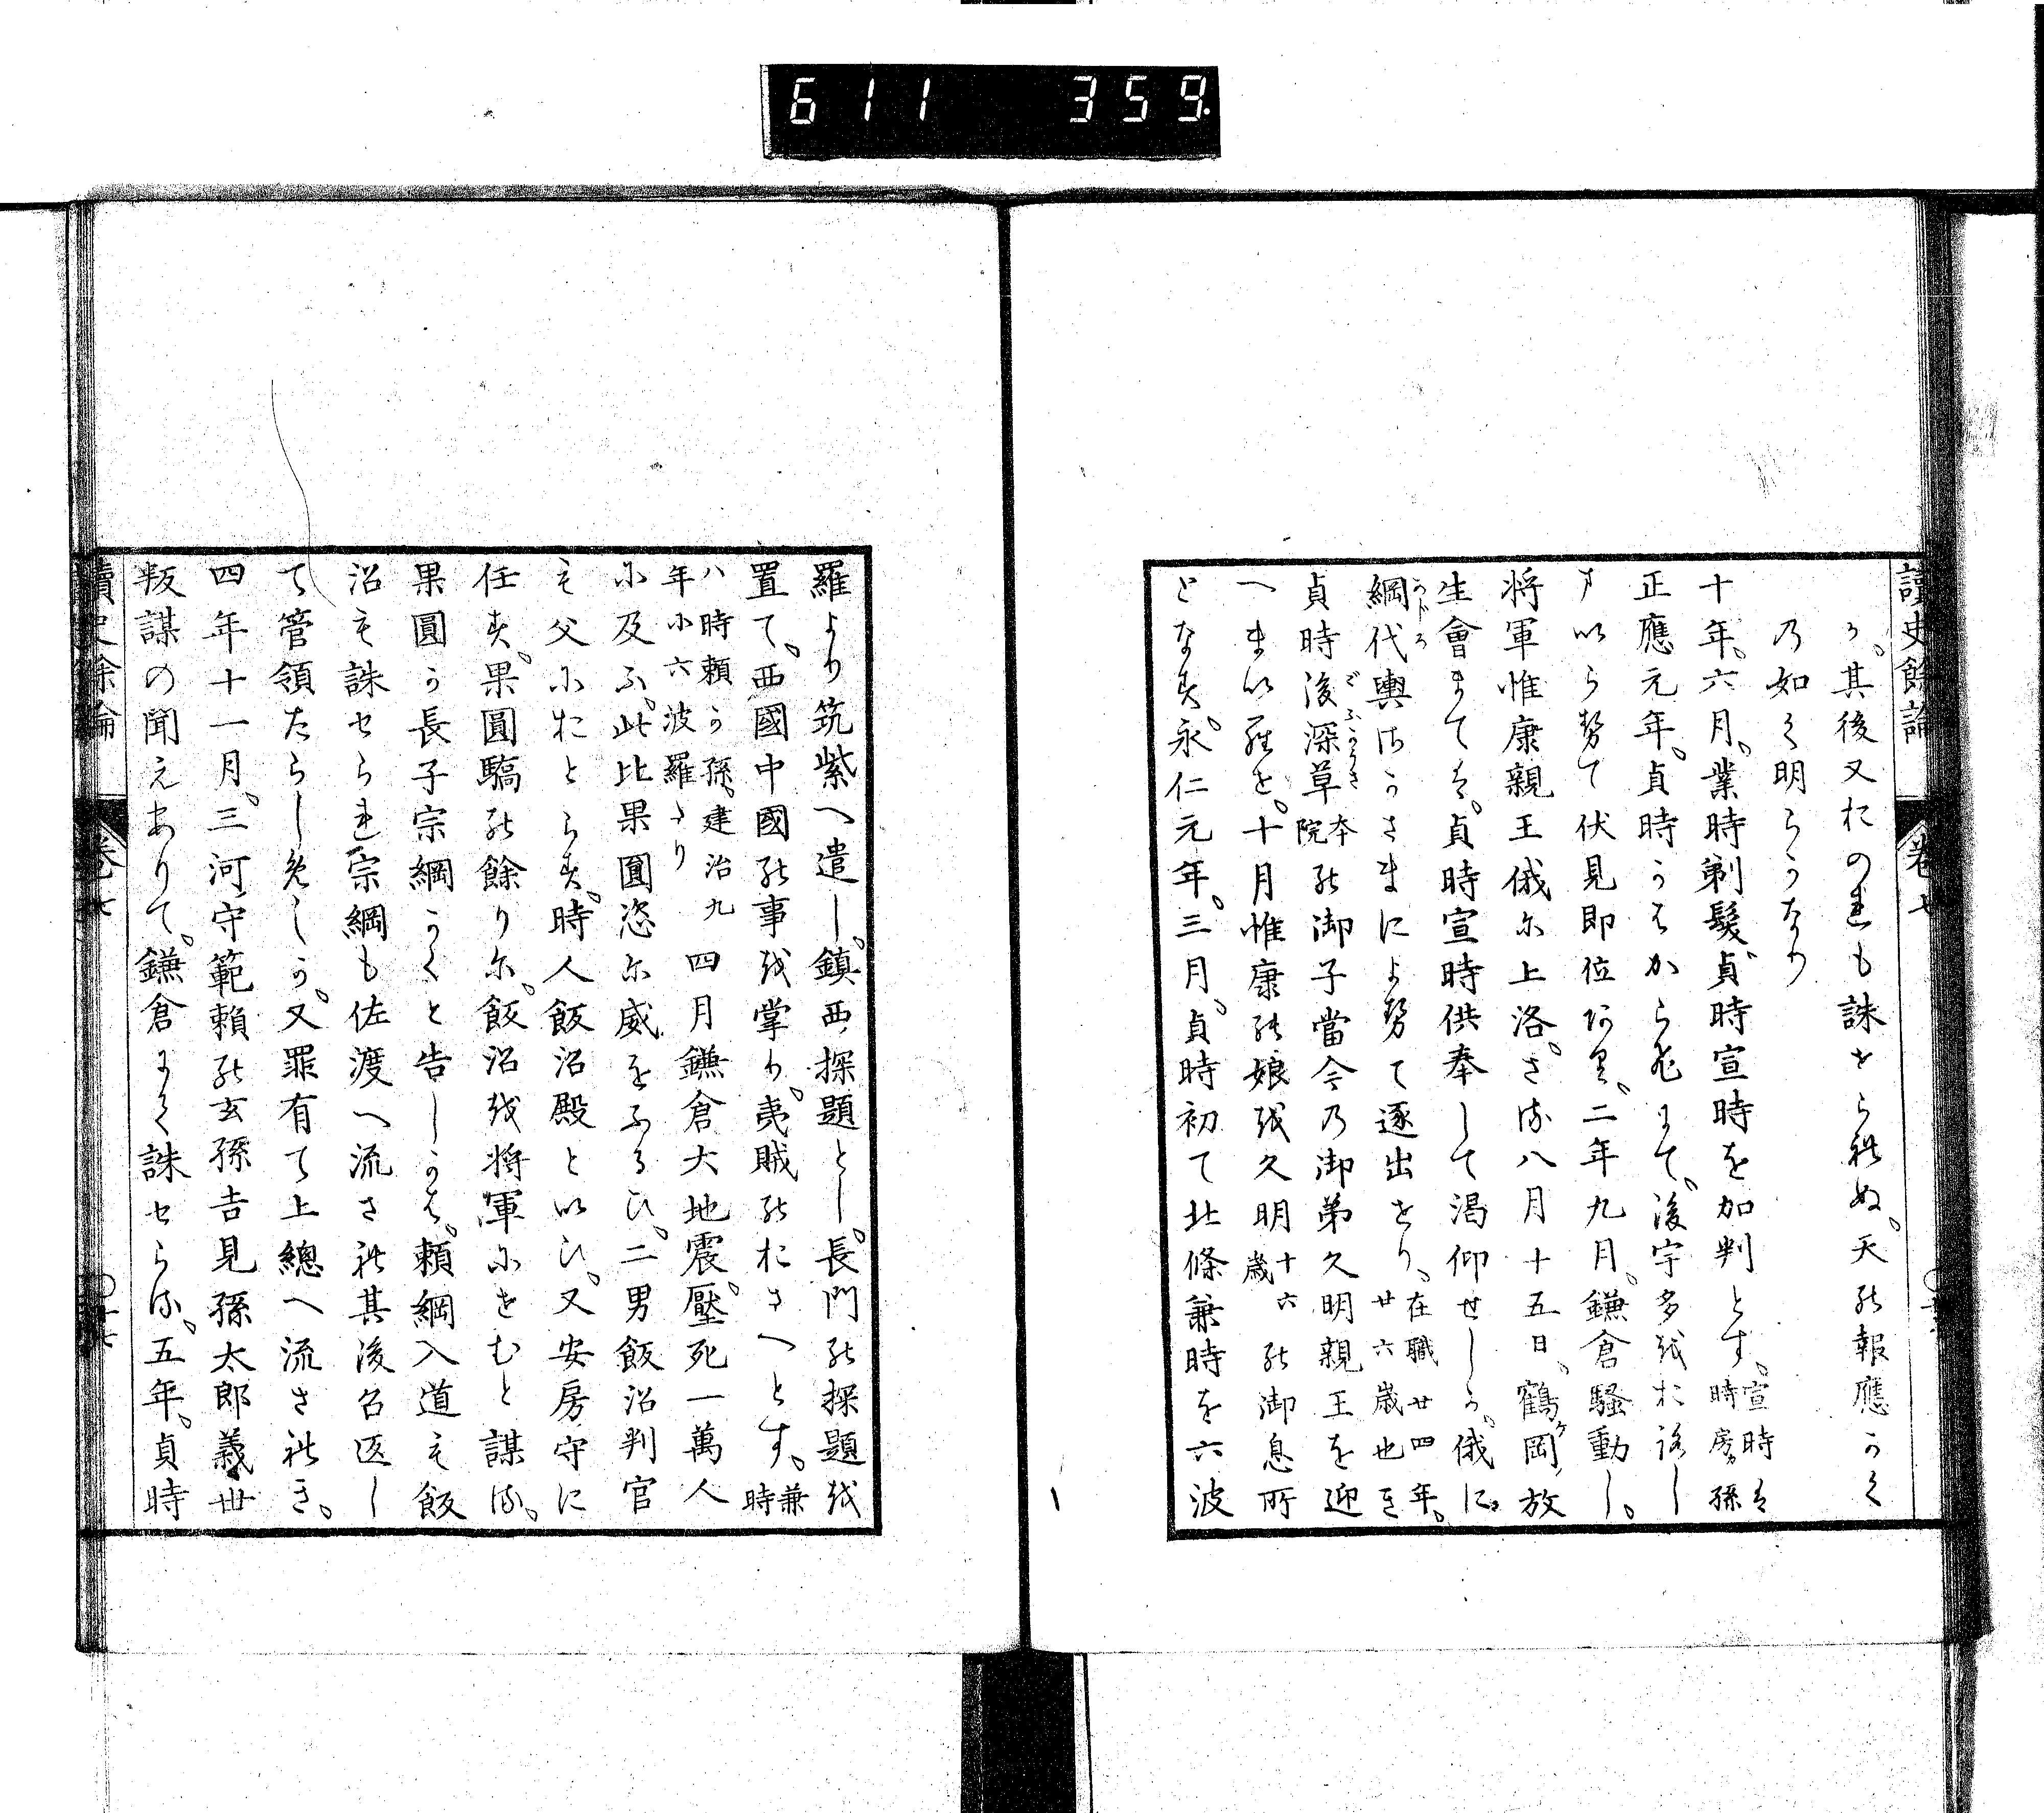 611 359.
讀史餘論 卷七
か。其後又おのれも誅せられぬ。天の報應かく
の如く明らかなり
十年。六月。業時剃髮。貞時宣時を加判とす。宣時は時房孫
正應元年。貞時かはからひにて。後宇多をおろし
まいらせて伏見即位あり。二年九月。鎌倉騷動し。
将軍惟康親王俄に上洛。さる八月十五日。鶴ケ岡ノ放
生會まては。貞時宣時供奉して渇仰せしか。俄に。
網代輿にさかさまによせて逐出せり。在職廿四年。廿六歳也き
あじろ
貞時後深草本院の御子當今の御弟久明親王を迎
ごふかくさ
へまいらせ。十月惟康の娘を久明十六歳の御息所
となす。永仁元年。三月。貞時初て北條兼時を六波
羅より筑紫へ遣し。鎮西ノ探題とし。長門の探題を
置て。西國中國の事を掌り。夷賊のおさへとす。兼時
ハ時頼か孫。建治九年に六波羅たり 四月鎌倉大地震。壓死一萬人
に及ふ。此比果圓恣に威をふるひ。二男飯沼判官
も父におとらす。時人飯沼殿といひ。又安房守に
任す。果圓驕の餘りに。飯沼を将軍にせむと謀る。
果圓か長子宗綱かくと告しかは。頼綱入道も飯
沼も誅せられ宗綱も佐渡へ流され其後召返し
て管領たらしめしか。又罪有て上總へ流されき。
四年十一月。三河ノ守範頼の玄孫吉見孫太郎義世
叛謀の聞えありて。鎌倉にて誅せらる。五年。貞時
讀史餘論 卷七